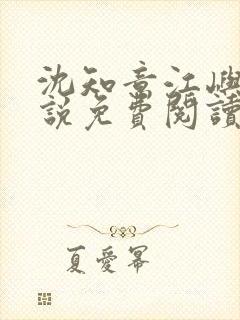 沈知意江嶼
說免費閱讀
夏愛冪